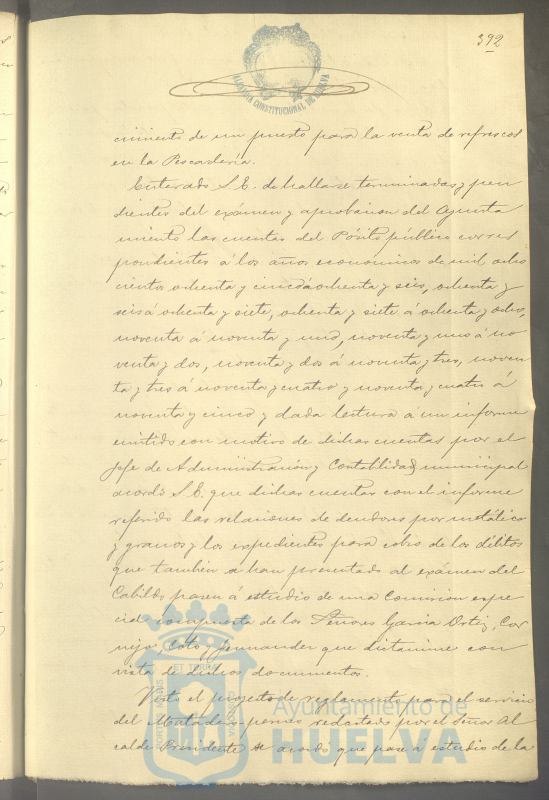 392
ALCALDÍA CONSTITUCIONAL DE HUELVA
cimiento de un puesto para la venta de refrescos
en la Pescadería.
Enterado S.E. de hallarse terminadas y pen
dientes del exámen y aprobacion del Ayunta
miento las cuentas del Pósito público corres
pondientes á los años económicos de mil ocho
cientos ochenta y cinco á ochenta y seis, ochenta y
seis á ochenta y siete, ochenta y siete á ochenta y ocho,
noventa á noventa y uno, noventa y uno á no
venta y dos, noventa y dos á noventa y tres, noven
ta y tres á noventa y cuatro y noventa y cuatro á
noventa y cinco y dada lectura á un informe
emitido con motivo de dichas cuentas por el
Jefe de Administracion y Contabilidad municipal
acordó S.E. que dichas cuentas con el informe
referido las relaciones de deudores por metálico
y granos y los expedientes para cobro de los débitos
que tambien se han presentado al exámen del
Cabildo pasen á estudio de una Comision espe
cial compuesta de los Señores Garcia Ortiz, Cor
nejo, Coto y Fernandez que dictamine con
vista de dichos documentos.
Visto el proyecto de reglamento para el servicio
del Matadero redactado por el Señor Al
calde Presidente se acordó que pase á estudio de la
PORTUS MARIS ET TERRAE CUSTODIA
Ayuntamiento de
HUELVA